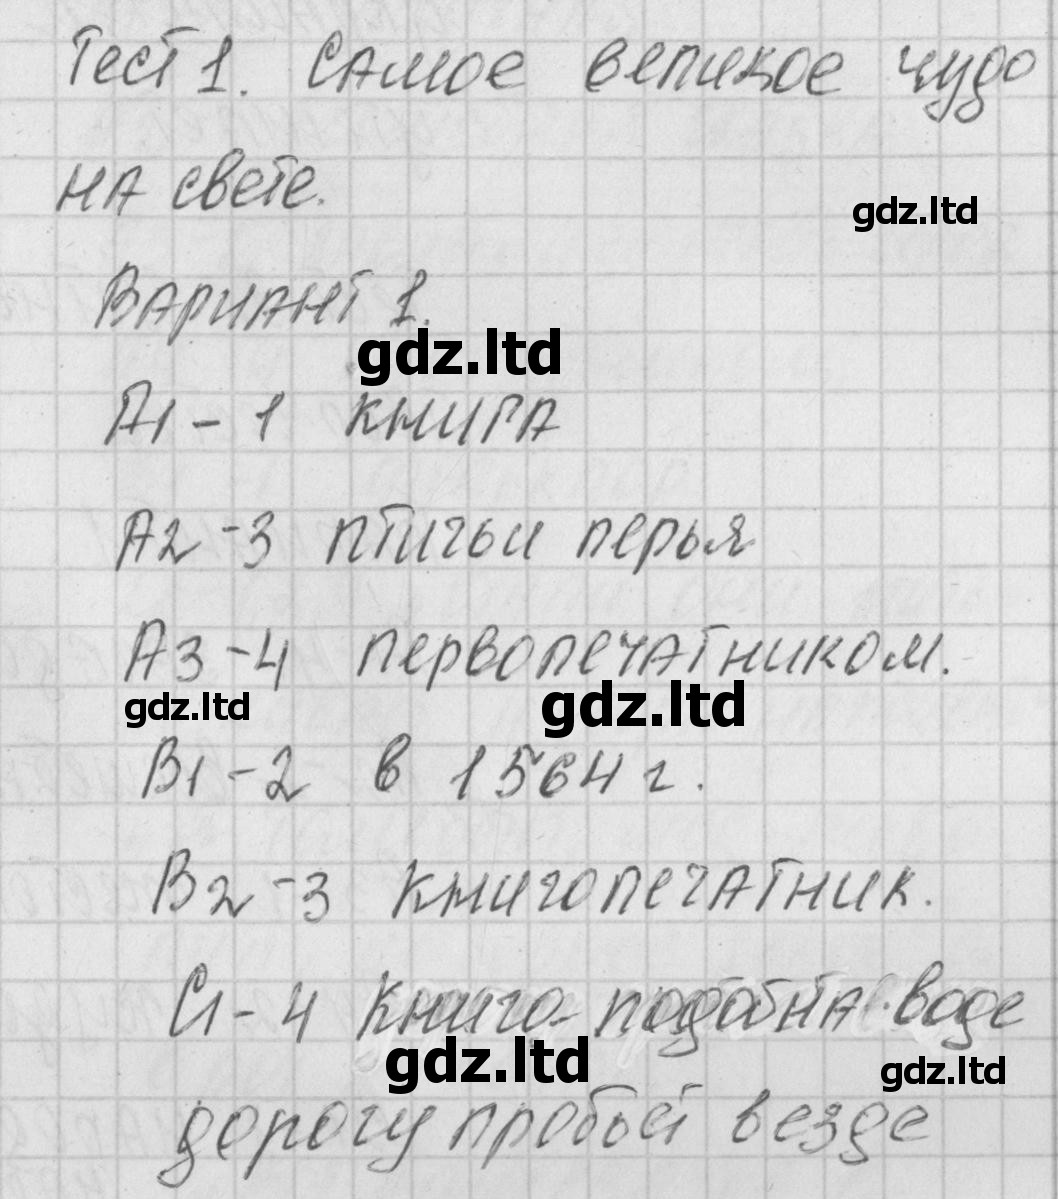 Тест 1. Самое великое чудо
на свете.
gdz.ltd
Вариант 1.
gdz.ltd
А1 - 1 книга
А2 - 3 птичьи перья
А3 - 4 первопечатником.
gdz.ltd gdz.ltd
В1 - 2 в 1564 г.
В2 - 3 книгопечатник.
С1 - 4 Книга подобна воде
gdz.ltd gdz.ltd
дорогу пробьёт везде